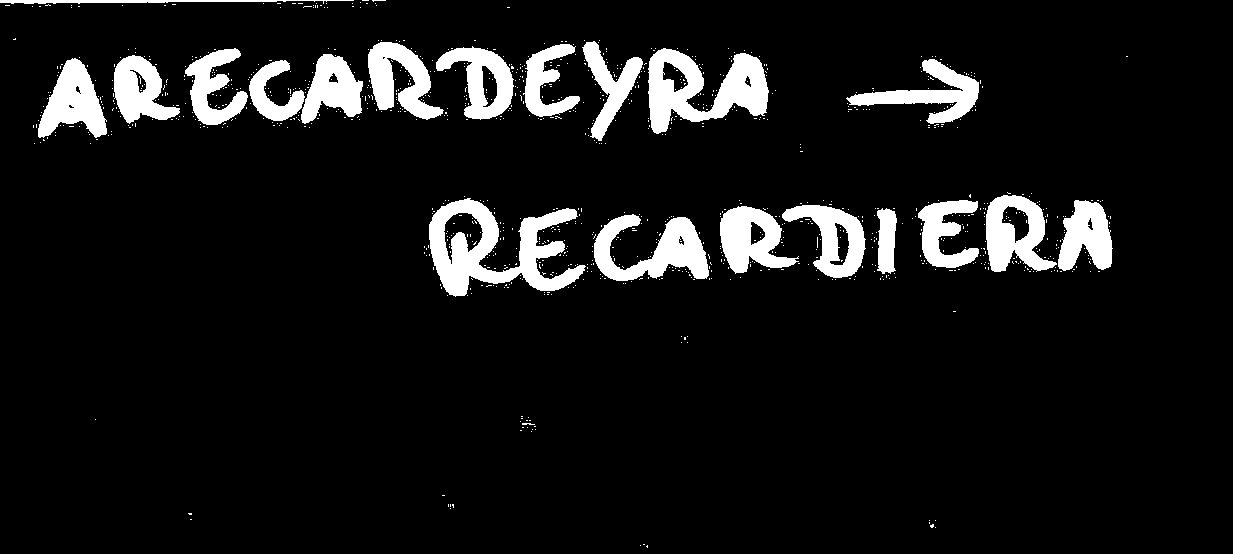 ARECARDEYRA →
RECARDIERA